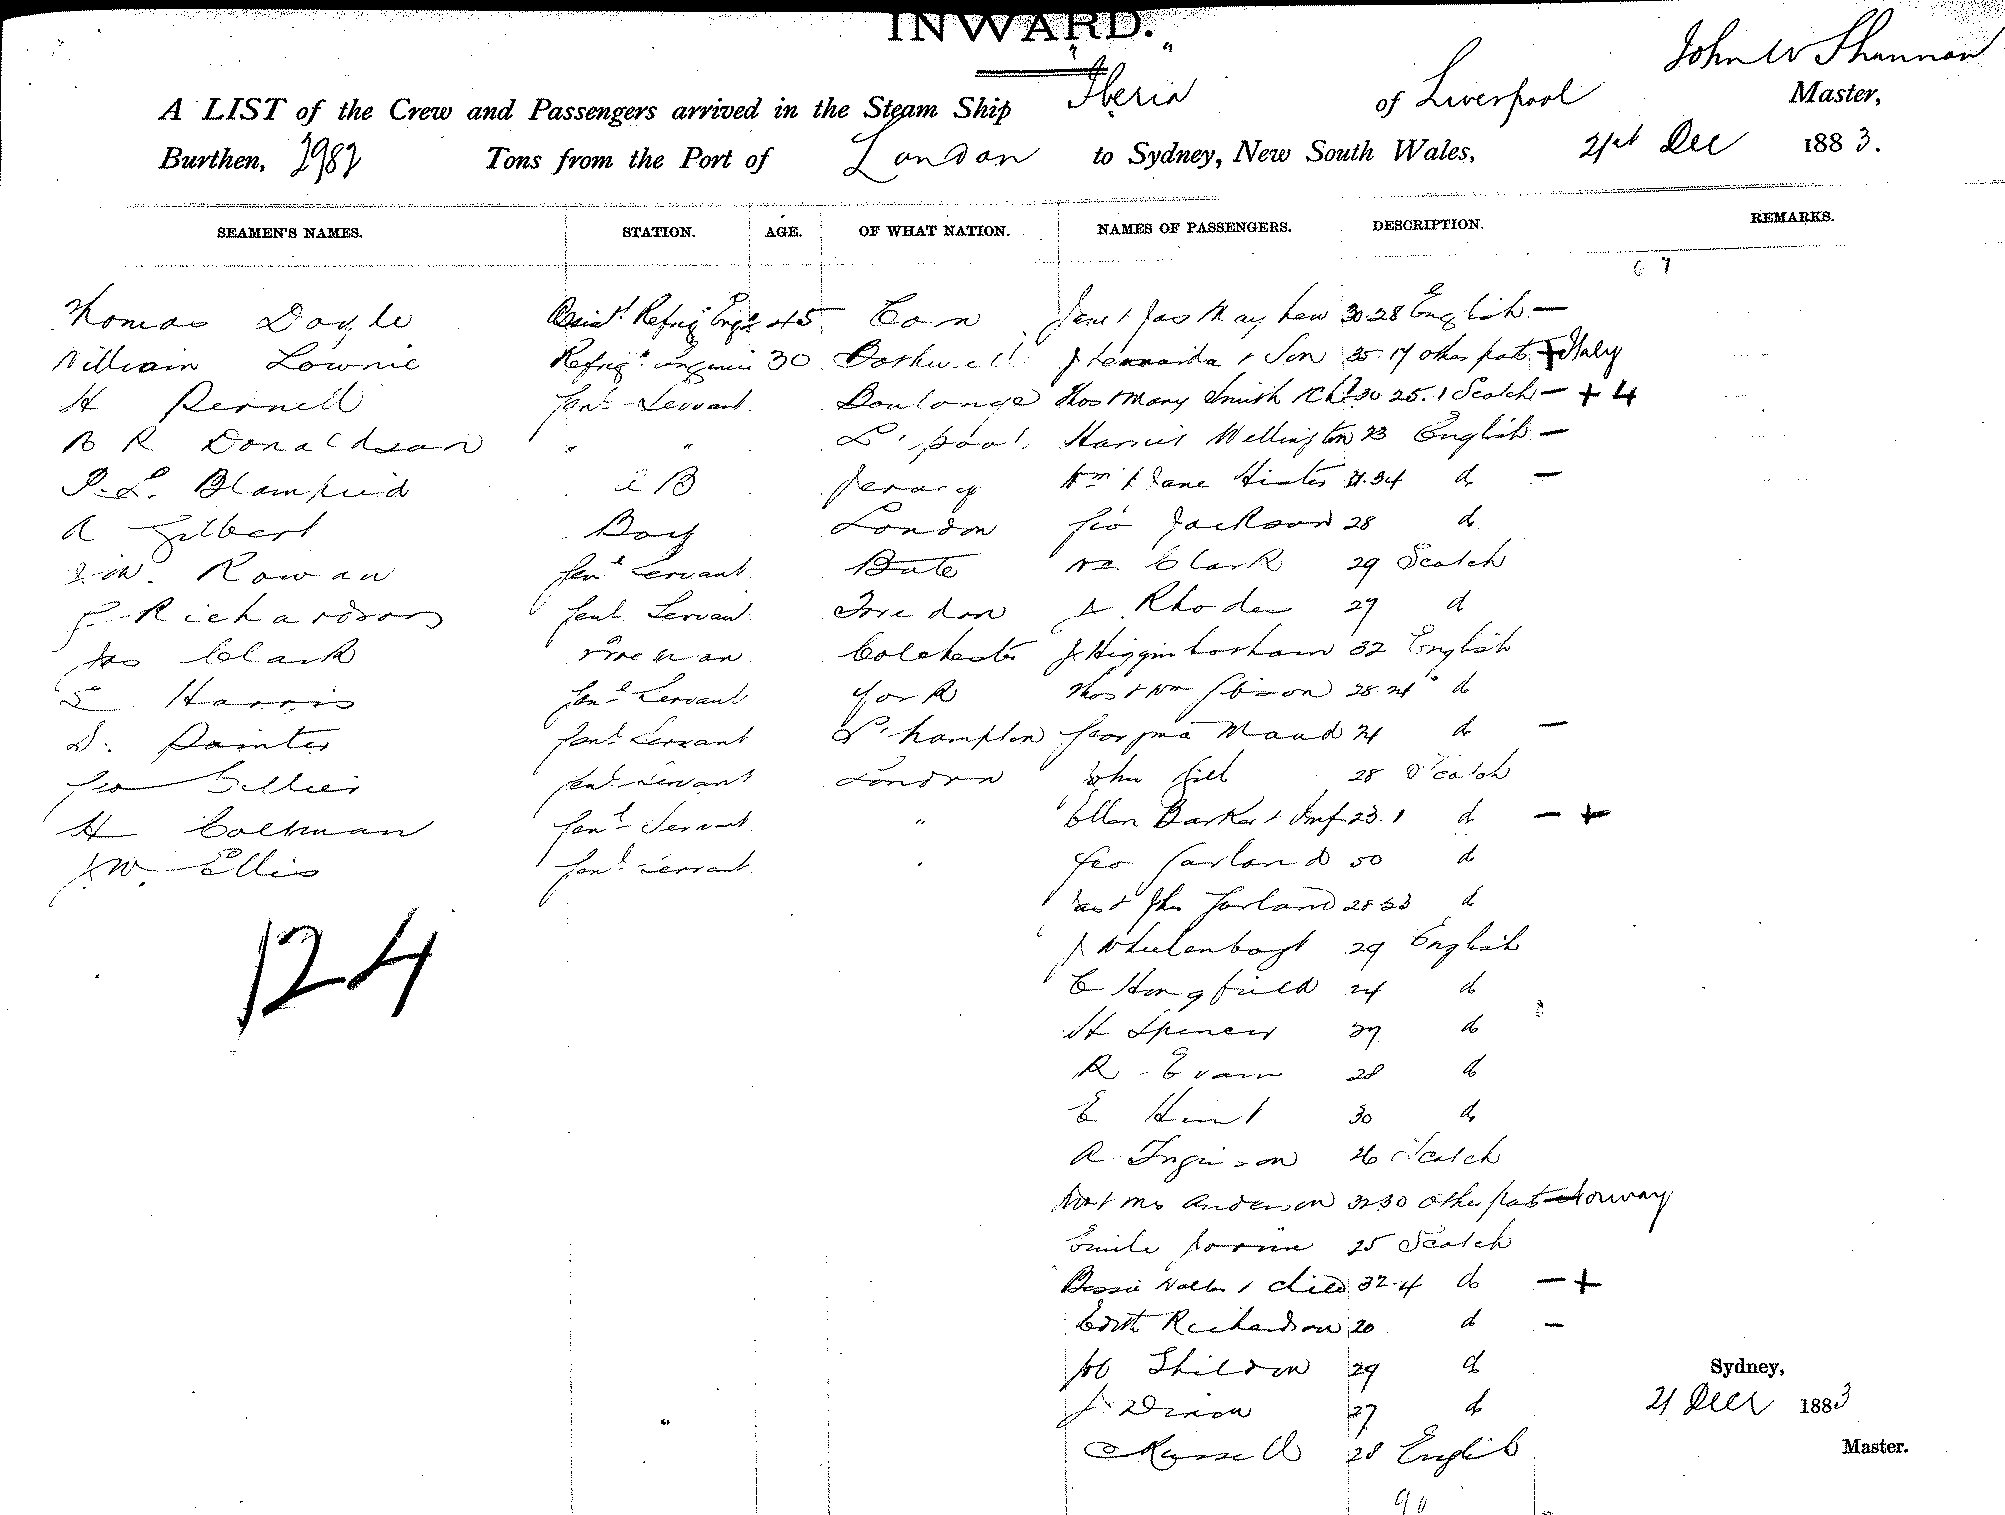 INWARD.
John W Shannon
A LIST of the Crew and Passengers arrived in the Steam Ship "Iberia" of Liverpool Master,
Burthen, 2982 Tons from the Port of London to Sydney, New South Wales, 21st Dec 1883.
SEAMEN'S NAMES. STATION. AGE. OF WHAT NATION. NAMES OF PASSENGERS. DESCRIPTION. REMARKS.
67
Thomas Doyle Assist. Refrig Engr 45 Jane & Jas Mayhew 30 28 English —
William Lownie Refrig. 30 Bothwell & Son 35. 17 other parts Italy
H Pernell Genl Servant Boulonge Thos & Mary Smith 1 Ch 30 25. 1 Scotch — + 4
B R Donaldson " " L'pool Harriet Wellington 23 English —
P. L. Blampied B Jersey Wm & Jane Hinton 31. 34 do —
A Gilbert Boy London Geo Jackson 28 do
Rowan Genl Servant Bute Clark 29 Scotch
G Richardson Genl Servant J. Rhodes 29 do
Jas Clark Colchester J. Higginbotham 32 English
S Harris Genl Servant York Thos & Wm Gibson 28 24 do
D. Painter Genl Servant S'hampton Georgina Maud 24 do —
Geo Genl Servant London John Gill 28 Scotch
H Coleman Genl Servant " Ellen Barker & Inf 23. 1 do — +
J. W. Ellis Genl Servant " Geo Garland 50 do
& Jhn Garland 28 23 do
J. 29 English
124
C Hongfield 24 do
H Spencer 37 do
R Evans 28 do
E Hunt 30 do
A 26 Scotch
& Mrs Anderson 32 30 other parts Norway
Emile 25 Scotch
Bessie & Child 32. 4 do — +
Edith Richardson 20 do —
Shildon 29 do Sydney,
J. Dixon 27 do 21 Decr 1883
Russell 28 English Master.
90